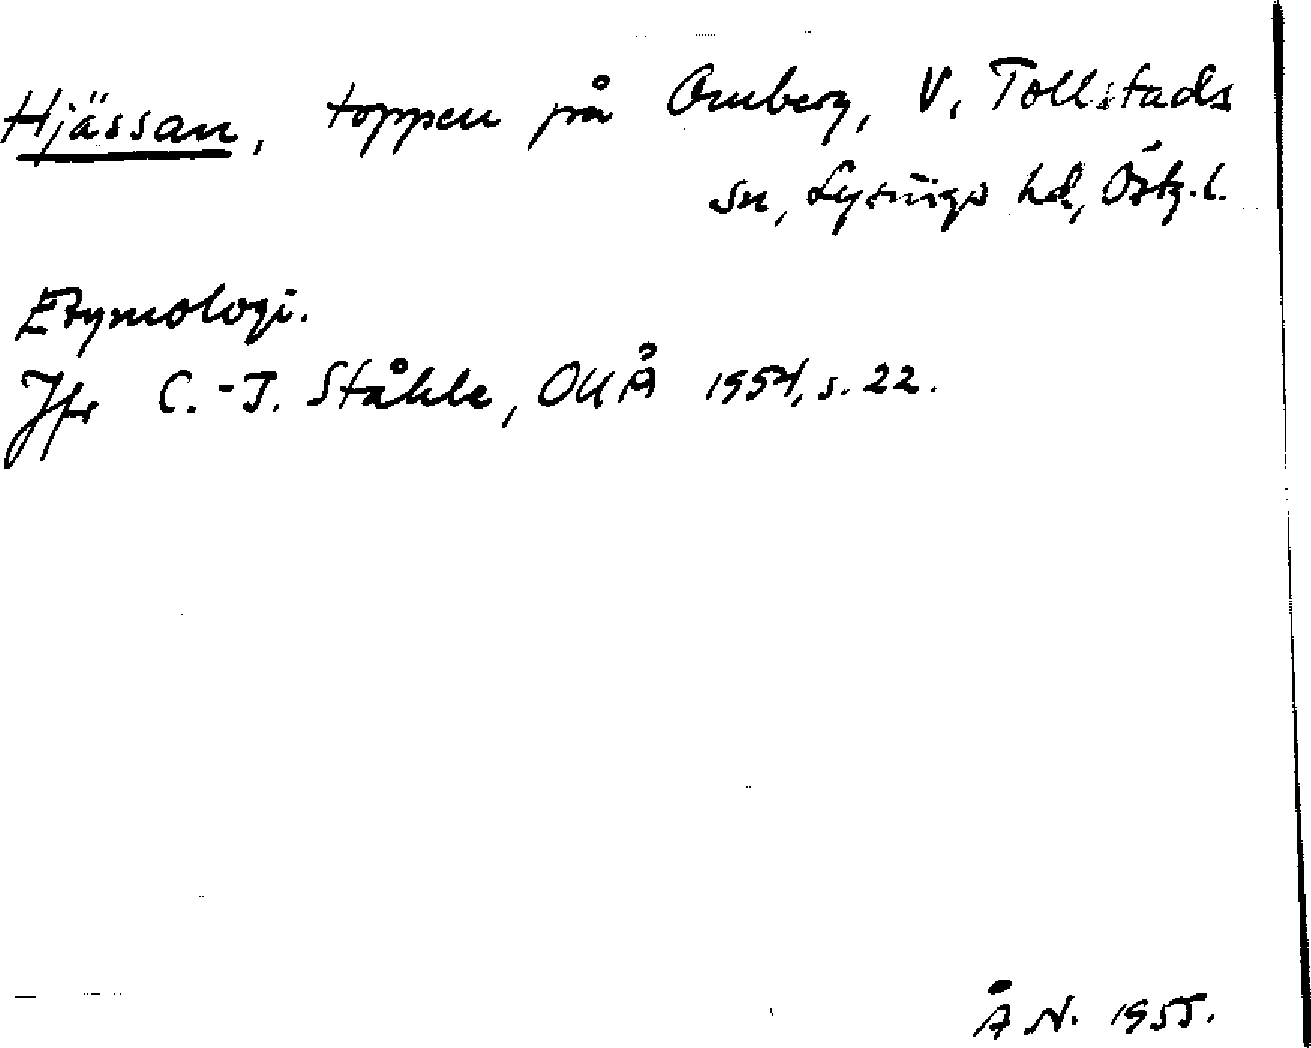 Hjässan, toppen på Omberg, V. Tollstads
sn, Lysings hd, Östg.l.
Etymologi.
Jfr C.-I. Ståhle, OUÅ 1954, s. 22.
Å N. 1955.